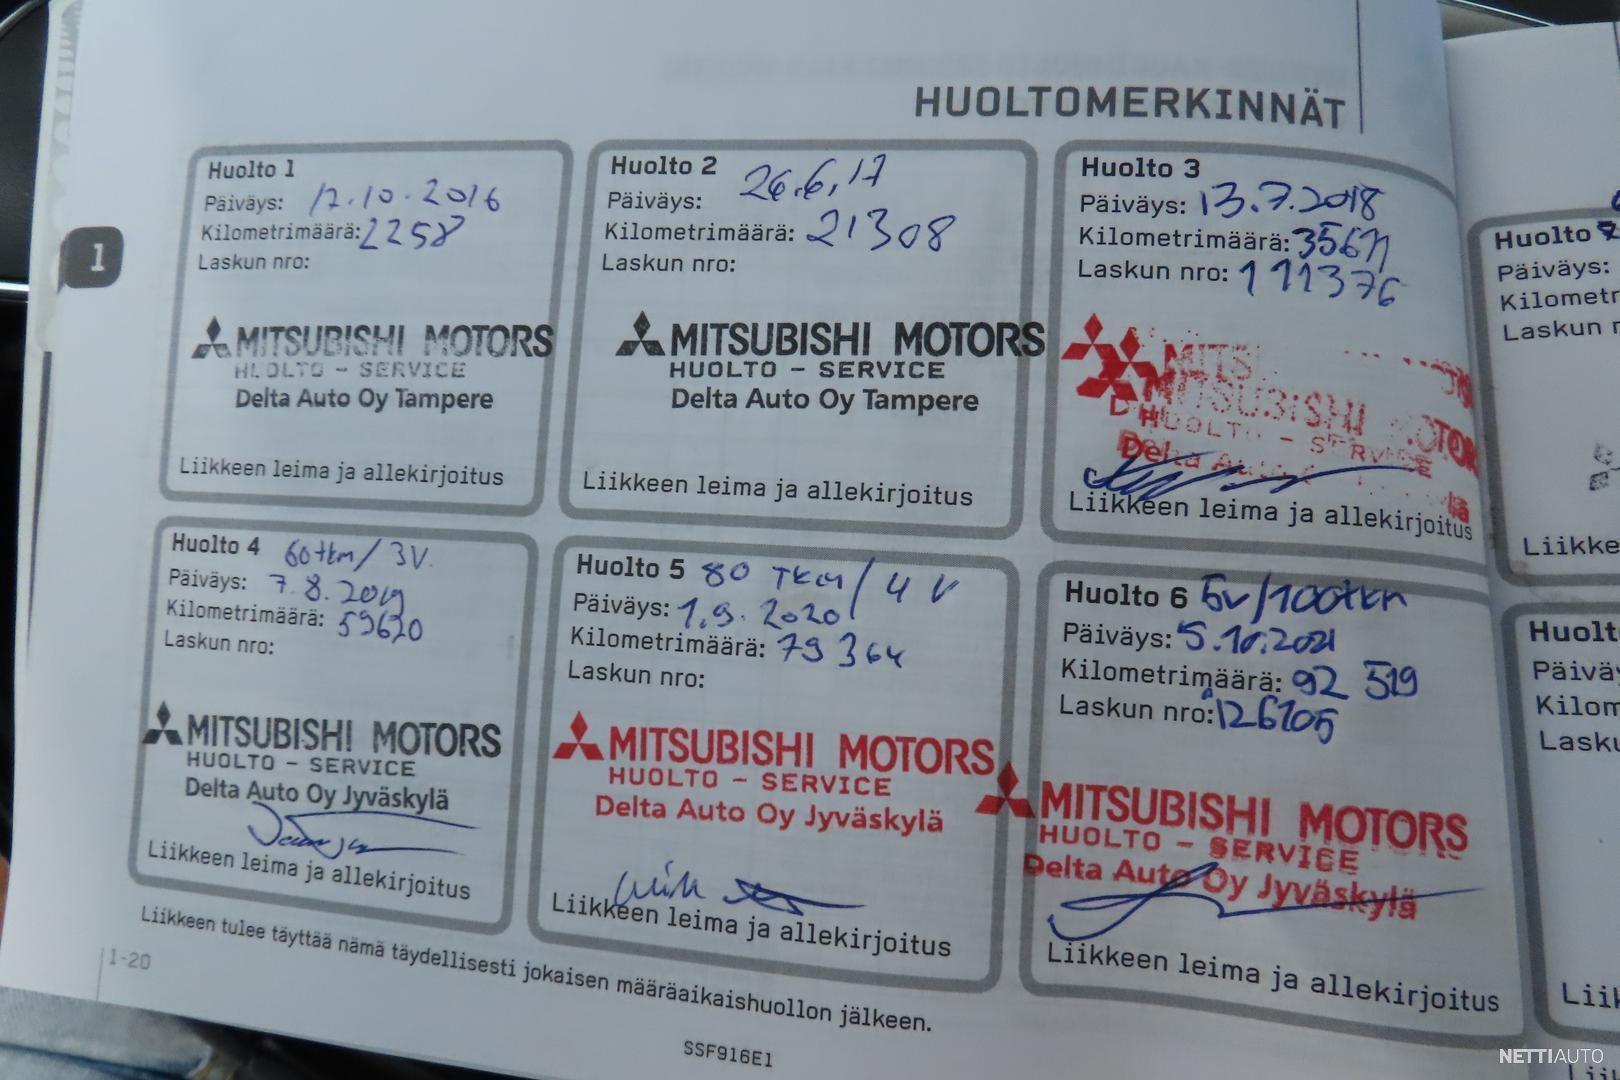 HUOLTOMERKINNÄT
1
Huolto 1
Päiväys: 17.10.2016
Kilometrimäärä: 2258
Laskun nro:
MITSUBISHI MOTORS
HUOLTO - SERVICE
Delta Auto Oy Tampere
Liikkeen leima ja allekirjoitus
Huolto 2
Päiväys: 26.6.17
Kilometrimäärä: 21308
Laskun nro:
MITSUBISHI MOTORS
HUOLTO - SERVICE
Delta Auto Oy Tampere
Liikkeen leima ja allekirjoitus
Huolto 3
Päiväys: 13.7.2018
Kilometrimäärä:
Laskun nro: 111376
MITSUBISHI MOTORS
HUOLTO - SERVICE
Delta
Liikkeen leima ja allekirjoitus
Huolto 4 60tkm/3V.
Päiväys: 7.8.2019
Kilometrimäärä: 59620
Laskun nro:
MITSUBISHI MOTORS
HUOLTO - SERVICE
Delta Auto Oy Jyväskylä
Liikkeen leima ja allekirjoitus
Huolto 5 80 TKM/4V
Päiväys: 1.9.2020
Kilometrimäärä: 79364
Laskun nro:
MITSUBISHI MOTORS
HUOLTO - SERVICE
Delta Auto Oy Jyväskylä
Liikkeen leima ja allekirjoitus
Huolto 6 5v/100tkm
Päiväys: 5.10.2021
Kilometrimäärä: 92 519
Laskun nro: 126705
MITSUBISHI MOTORS
HUOLTO - SERVICE
Delta Auto Oy Jyväskylä
Liikkeen leima ja allekirjoitus
Liikkeen tulee täyttää nämä täydellisesti jokaisen määräaikaishuollon jälkeen.
1-20
SSF916E1
Huolto
Päiväys:
Kilometr
Laskun n
Liikke
Huolt
Päiväy
Kilom
Lasku
Liik
NETTIAUTO